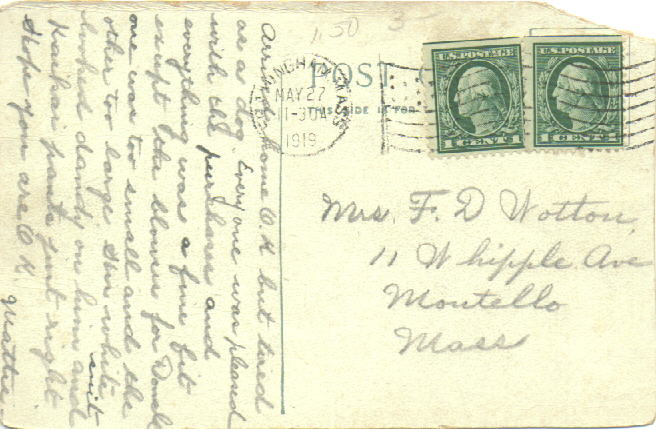 Arrived home O.K but tired
as a dog. Every one was pleased
with all purchases and
everything was a fine fit
except the blouses for Donald
one was too small and the
other too large. His white
suit
looked dandy on him and
Kaihai pants just right
Hope you are O.K.
Mattie.
1.50
3
POST
THIS SIDE IS FOR
MASS.
MAY 27
1-30
1919
U.S. POSTAGE
1 CENT 1
U.S. POSTAGE
1 CENT 1
Mrs. F. D Wotton
11 Whipple Ave
Montello
Mass